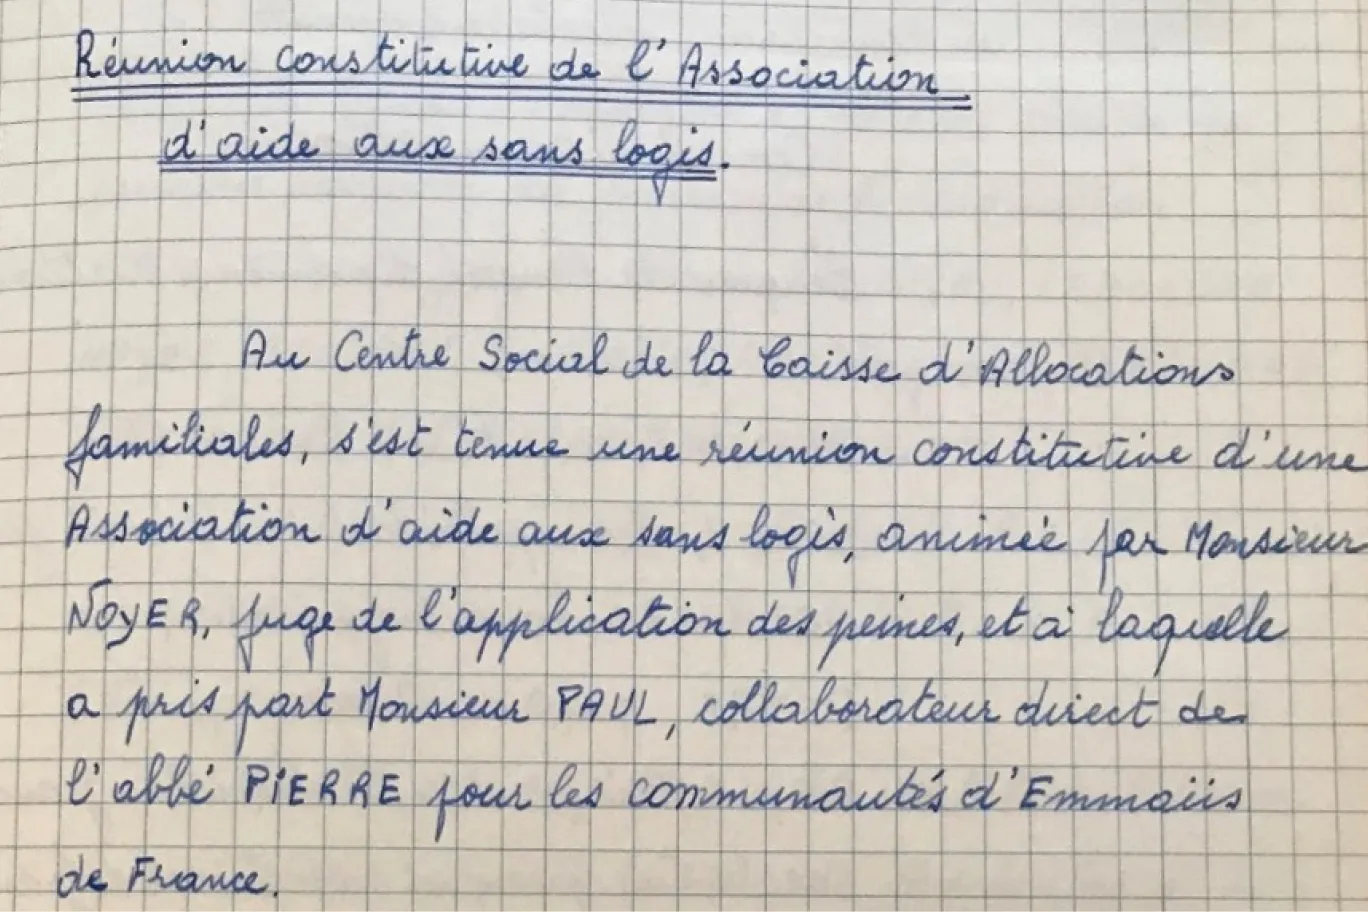 Réunion constitutive de l'Association
d'aide aux sans logis.
Au Centre Social de la Caisse d'Allocations
familiales, s'est tenue une réunion constitutive d'une
Association d'aide aux sans logis, animée par Monsieur
NOYER, juge de l'application des peines, et à laquelle
a pris part Monsieur PAUL, collaborateur direct de
l'abbé PiERRE pour les communautés d'Emmaüs
de France.